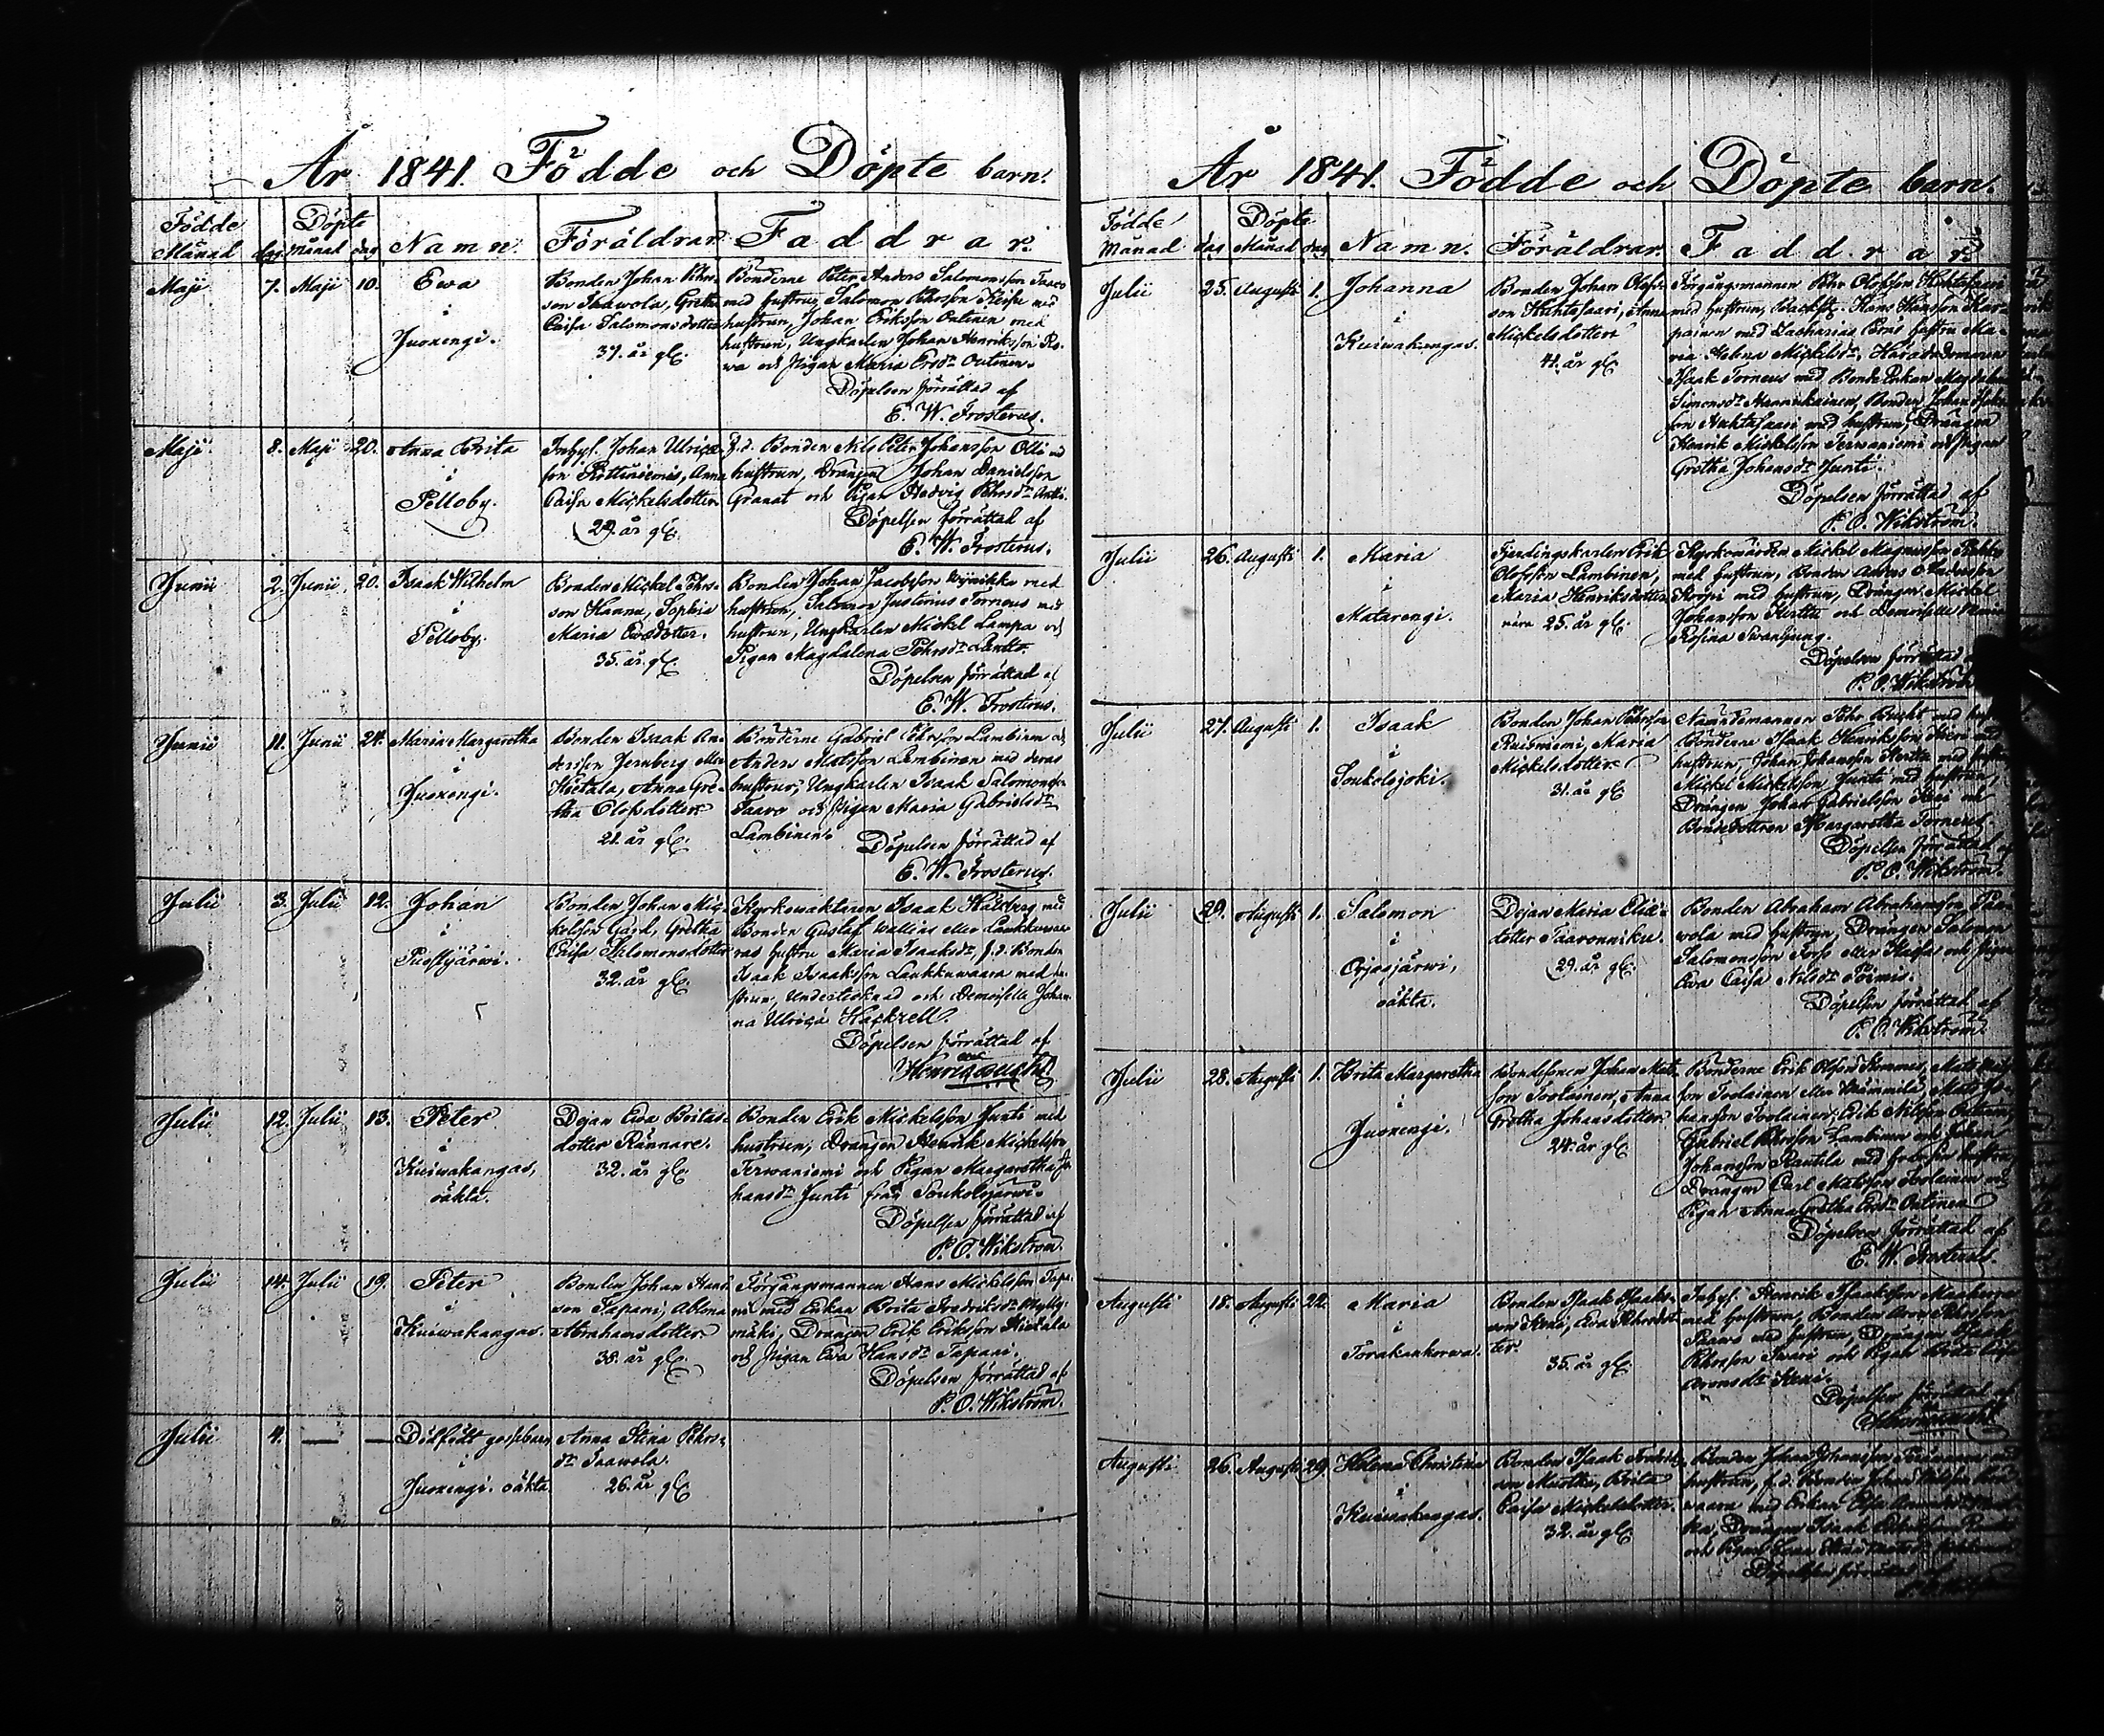 År 1841. Födde och Döpte barn.
Födde Döpte
Månad dag. Månad dag Namn. Föräldrar. Faddrar.
Maji 7. Maji 10. Ewa
i
Juoxengi.
Bonden Johan Pehrs-
son Thawola, Greta
Caisa Salomonsdotter
37. år gl.
Bönderne Peter Anders Salomonsson Taavo
med hustru, Salomon Pehrsson med
hustrun, Johan Eriksson Outinen med
hustrun, Ungkarlen Johan Henriksson Ro-
wa och Pigan Maria Ersdr Outinen.
Döpelsen förrättad af
E. W. Frosterus.
Maji 8. Maji 20. Anna Brita
i
Pelloby.
Inhys. Johan Ulrics-
son Rattiniemi, Anna
Caisa Mickelsdotter.
29. år gl.
f.d. Bonden Nils Peter Johansson Olli med
hustrun, Drängen Johan Danielsson
Granat och Pigan Hedvig Pehrsdr Antti.
Döpelsen förrättad af
E. W. Frosterus.
Junii 2. Junii 20. Isaak Wilhelm
i
Pelloby.
Bonden Mickel Pehrs-
son Hannu, Sophia
Maria Ewedotter.
35. år gl.
Bonden Johan Jacobsson Wynikka med
hustrun, Salomon Justinus Torneus med
hustrun, Ungkarlen Mickel Lampa och
Pigan Magdalena Pehrsdr Lantto.
Döpelsen förrättad af
E. W. Frosterus.
Junii 11. Junii 24. Maria Margaretha
i
Juoxengi.
Bonden Isaak An-
dersson Jernberg eller
Hietala, Anna Gre-
tha Olofsdotter
21. år gl.
Bönderne Gabriel Pehrsson Lambinen och
Anders Matsson Lambinen med deras
hustrur, Ungkarlen Isaak Salomonss.
Taavo och Pigan Maria Gabrielsdr
Lambinen.
Döpelsen förrättad af
E. W. Frosterus.
Julii 3. Julii 12. Johan
i
Puostijärwi.
Bonden Johan Mic-
kelsson Gard, Gretha
Caisa Salomonsdotter
32. år gl.
Kyrkowaktaren Isaak Hallberg med
Bonden Gustaf Wallius eller Laukkuwaa-
ras hustru Maria Isaaksdr, f.d. Bonden
Isaak Isaaksson Laukkuwaara med hu-
strun, Undertecknad och Demoiselle Johan-
na Ulrica Hackzell.
Döpelsen förrättad af
Julii 12. Julii 13. Peter
i
Kuiwakangas,
oäkta.
Dejan Ewa Britas-
dotter Rännare.
32. år gl.
Bonden Erik Mickelsson Junti med
hustrun, Drängen Henrik Mickelsson
Terwaniemi och Pigan Margaretha Jo-
hansdr Junti från Soukolojärwi.
Döpelsen förrättad af
P. O. Wikström.
Julii 14. Julii 19. Peter
i
Kuiwakangas.
Bonden Johan Hans-
son Tapani, Ablona
Abrahamsdotter
38. år gl.
Förgångsmannen Hans Mickelsson Tapa-
ni med Enkan Brita Fredriksdr Mylly-
mäki, Drängen Erik Eriksson Hietala
och Pigan Ewa Hansdr Tapani.
Döpelsen förrättad af
P. O. Wikström.
Julii 4. — — Dödfödt gossebarn
i
Juoxengi. oäkta
Anna Stina Pehrs-
dr Saawola.
26. år gl.
År 1841. Födde och Döpte barn.
Födde Döpte
Månad dag Månad dag Namn. Föräldrar. Faddrar.
Julii 25. Augusti 1. Johanna
i
Kuiwakangas.
Bonden Johan Olofs-
son Huhtasaari, Anna
Mickelsdotter
41. år gl.
Förgångsmannen Pehr Olofsson Huhtasaari
med hustrun, Hans Hansson Kar-
painen med Zacharias Ers hustru Ma-
ria Helena Mickelsdr, Häradsdomaren
Isaak Torneus med Bonde Enkan Magdalena
Simonsdr Bonden Johan
son Huhtasaari med hustrun, Drängen
Henrik Mickelsson Terwaniemi och Pigan
Gretha Johansdr Junti.
Döpelsen förrättad af
P. O. Wikström.
Julii 26. Augusti 1. Maria
i
Matarengi.
Fjerdingskarlen Erik
Olofsson Lambinen,
Maria Henriksdotter
nära 25. år gl.
Kyrkowärden Mickel Magnusson
med hustrun, Bonden Anders Andersson
Koopi med hustrun, Drängen Mickel
Johansson Hertta och Demoiselle Maria
Rosina Swanljung.
Döpelsen förrättad
P. O. Wikström
Julii 27. Augusti 1. Isaak
i
Soukolojoki.
Bonden Johan Pehrsson
Ruisniemi, Maria
Mickelsdotter
31. år gl.
Nämndemannen Pehr med
Bönderne Isaak Henriksson med
hustrun, Johan Johansson Hertta med
Mickel Mickelsson Junti med hustrun,
Drängen Johan Gabrielsson och
Bondedottren Margaretha Torneus
Döpelsen förrättad af
P. O. Wikström.
Julii 29. Augusti 1. Salomon
i
Orjasjärwi,
oäkta.
Dejan Maria Eliæ-
dotter Taavonniku.
29. år gl.
Bonden Abraham Abrahamsson
wola med hustrun, Drängen Salomon
Salomonsson Fors eller och Pigan
Ewa Caisa Nilsdr
Döpelsen förrättad af
P. O. Wikström
Julii 28. Augusti 1. Brita Margaretha
i
Juoxengi.
Bondesonen Johan Mats-
son Toolainen, Anna
Gretha Johansdotter
24. år gl.
Bönderne Erik Mats
son Toolainen eller Mats Jo-
hansson Toolainen, Erik Nilsson
Gabriel Pehrsson Lambinen och Johan
Johansson Rautila med hustrur
Drängen Carl Matsson Toolainen och
Pigan Anna Gretha Ersdr Outinen
Döpelsen förrättad af
E. W. Frosterus.
Augusti 18. Augusti 22. Maria
i
Torakankorwa.
Bonden Isaak Isaaks-
son Keni, Ewa Pehrsdot-
ter
35. år gl.
Inhys. Henrik Isaaksson
med hustrun, Bonden Aron Pehrsson
med hustrun, Drängen Isaak
Pehrsson och Pigan Brita Caisa
Aronsdr Keni.
Döpelsen förrättad af
Augusti 26. Augusti 29. Helena Christina
i
Kuiwakangas.
Bonden Isaak Fredriks-
son Muotka, Brita
Caisa Mickelsdotter.
32. år gl.
Bonden Johan Johansson
hustrun, f.d. Bonden Johan
waara med Enkan
ka, Drängen Isaak
och Pigan
Döpelsen förrättad